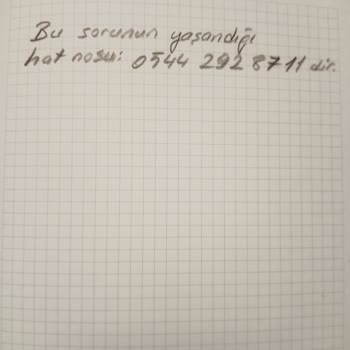 Bu sorunun yaşandığı
hat nosu: 0544 292 8711 dir.